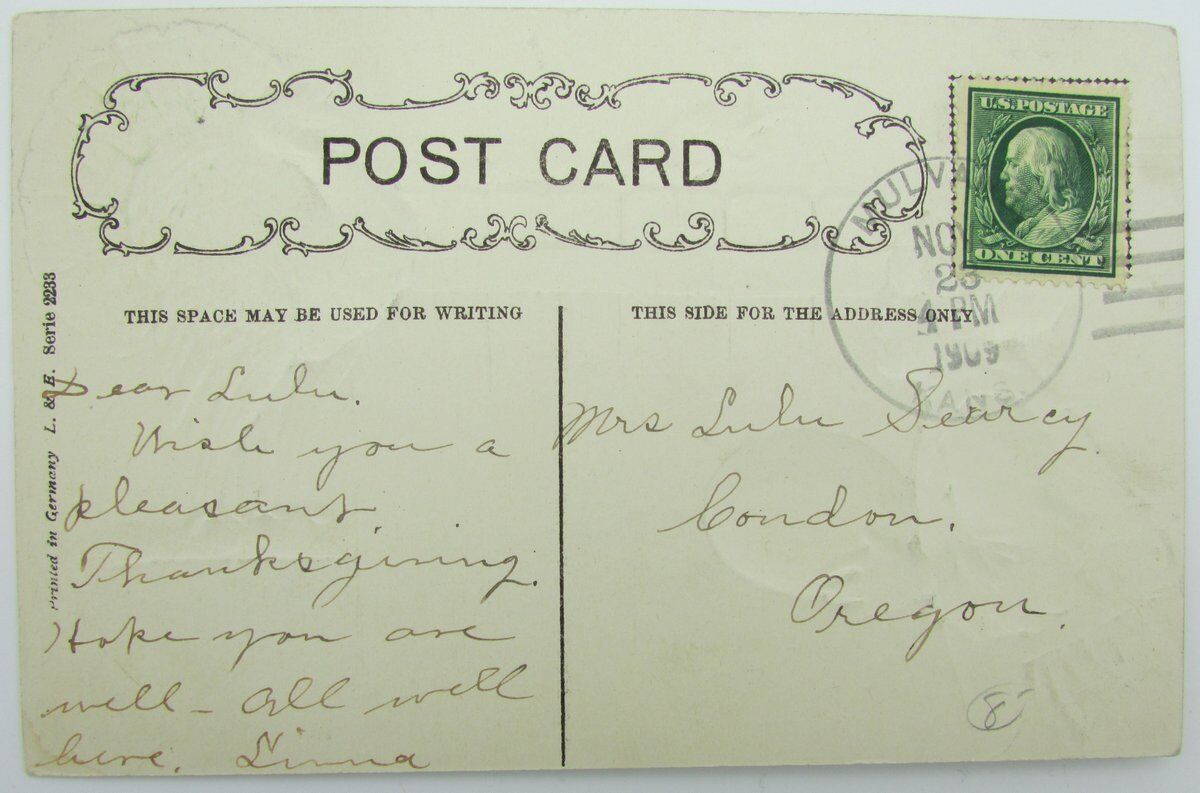 POST CARD
U.S. POSTAGE
ONE CENT
MULVA
NOV
23
4 PM
1909
KANS.
THIS SPACE MAY BE USED FOR WRITING
THIS SIDE FOR THE ADDRESS ONLY
Printed in Germany L. & E. Serie 2233
Dear Lulu.
Wish you a
pleasant
Thanksgiving.
Hope you are
well - all well
here. Linna
Mrs Lulu Searcy
Condon,
Oregon.
8